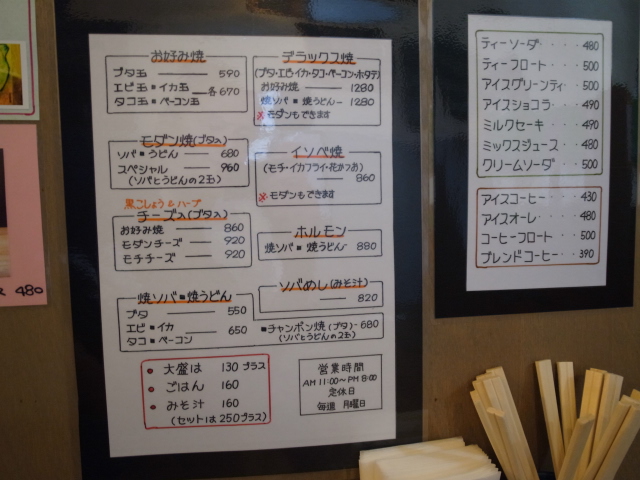 お好み焼
ブタ玉 ―― 590
エビ玉・イカ玉
タコ玉・ベーコン玉 ―各670
モダン焼(ブタ入)
ソバ・うどん ―― 680
スペシャル ―― 960
(ソバとうどんの2玉)
黒こしょう&ハーブ
チーズ入(ブタ入)
お好み焼 ―― 860
モダンチーズ ―― 920
モチチーズ ―― 920
焼ソバ・焼うどん
ブタ ―― 550
エビ・イカ
タコ・ベーコン ―― 650
デラックス焼
(ブタ・エビ・イカ・タコ・ベーコン・ホタテ)
お好み焼 ―― 1280
焼ソバ・焼うどん― 1280
※モダンもできます
イソベ焼
(モチ・イカフライ・花かつお)
―― 860
※モダンもできます
ホルモン
焼ソバ・焼うどん― 880
ソバめし(みそ汁)
―― 820
・チャンポン焼(ブタ)・680
(ソバとうどんの2玉)
・大盛は 130プラス
・ごはん 160
・みそ汁 160
(セットは250プラス)
営業時間
AM 11:00〜PM 8:00
定休日
毎週 月曜日
ティーソーダ・・・・480
ティーフロート・・・500
アイスグリーンティ・・500
アイスショコラ・・・490
ミルクセーキ・・・490
ミックスジュース・・480
クリームソーダ・・・500
アイスコーヒー・・・430
アイスオーレ・・・・480
コーヒーフロート・・500
ブレンドコーヒー・・390
480